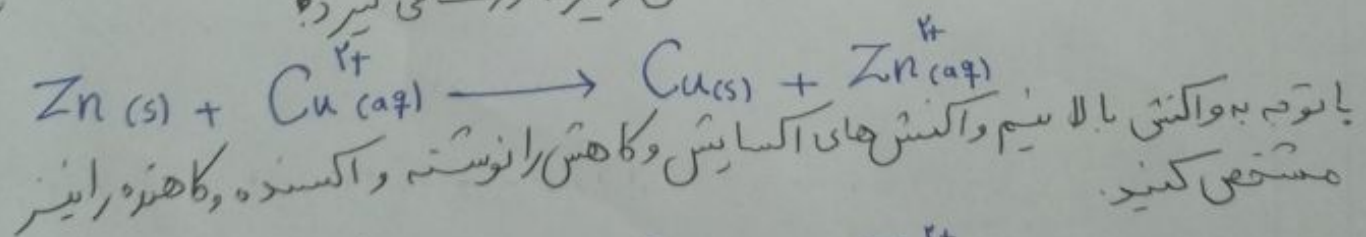 می گیرد؟
Zn (s) + Cu²⁺ (aq) ⟶ Cu(s) + Zn²⁺ (aq)
با توجه به واکنش بالا نیم واکنش های اکسایش و کاهش را نوشته و اکسنده و کاهنده را نیز
مشخص کنید.